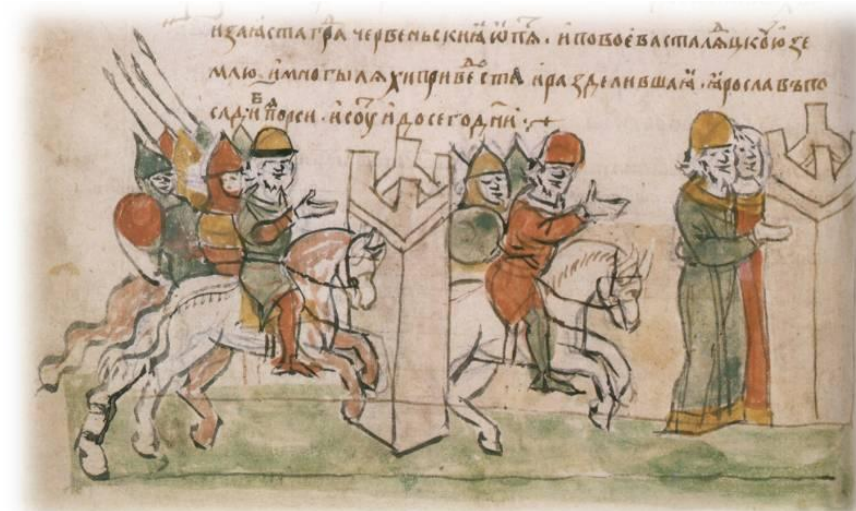 изаѧста граⷣ червеньскиꙗ ѡпѧⷮ . и повоеваста лѧцкоую зе
млю . и многы лѧхи привеⷣста и разделившаꙗ . ꙗрославъ по
по рси . и соуⷮ и до сего дн҃и